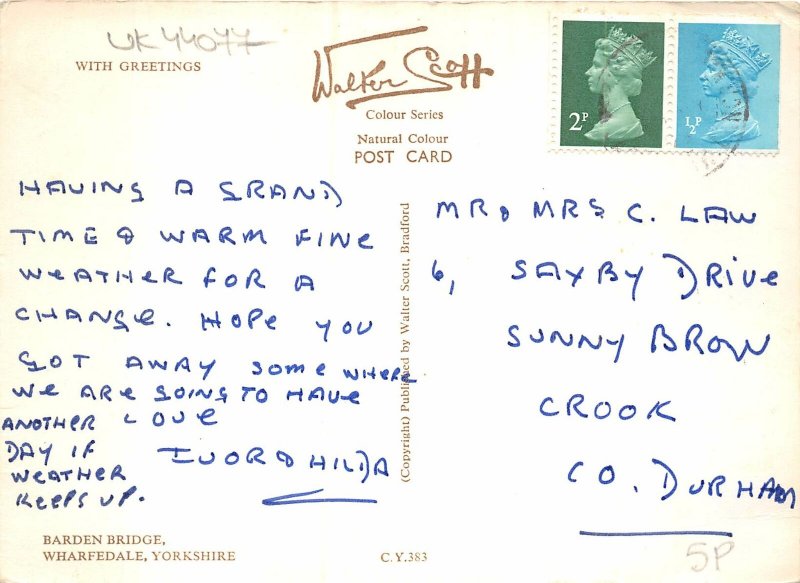 UK44077
WITH GREETINGS
Walter Scott
Colour Series
Natural Colour
POST CARD
2P
½P
HAVING A GRAND
TIME & WARM FINE
WEATHER FOR A
CHANGE. HOPE YOU
GOT AWAY SOMEWHERE
WE ARE GOING TO HAVE
ANOTHER
DAY IF
WEATHER
KEEPS UP.
LOVE
IVOR & HILDA
(Copyright) Published by Walter Scott, Bradford
MR & MRS C. LAW
6, SAXBY DRIVE
SUNNY BROW
CROOK
CO. DURHAM
BARDEN BRIDGE,
WHARFEDALE, YORKSHIRE
C.Y.383
5P